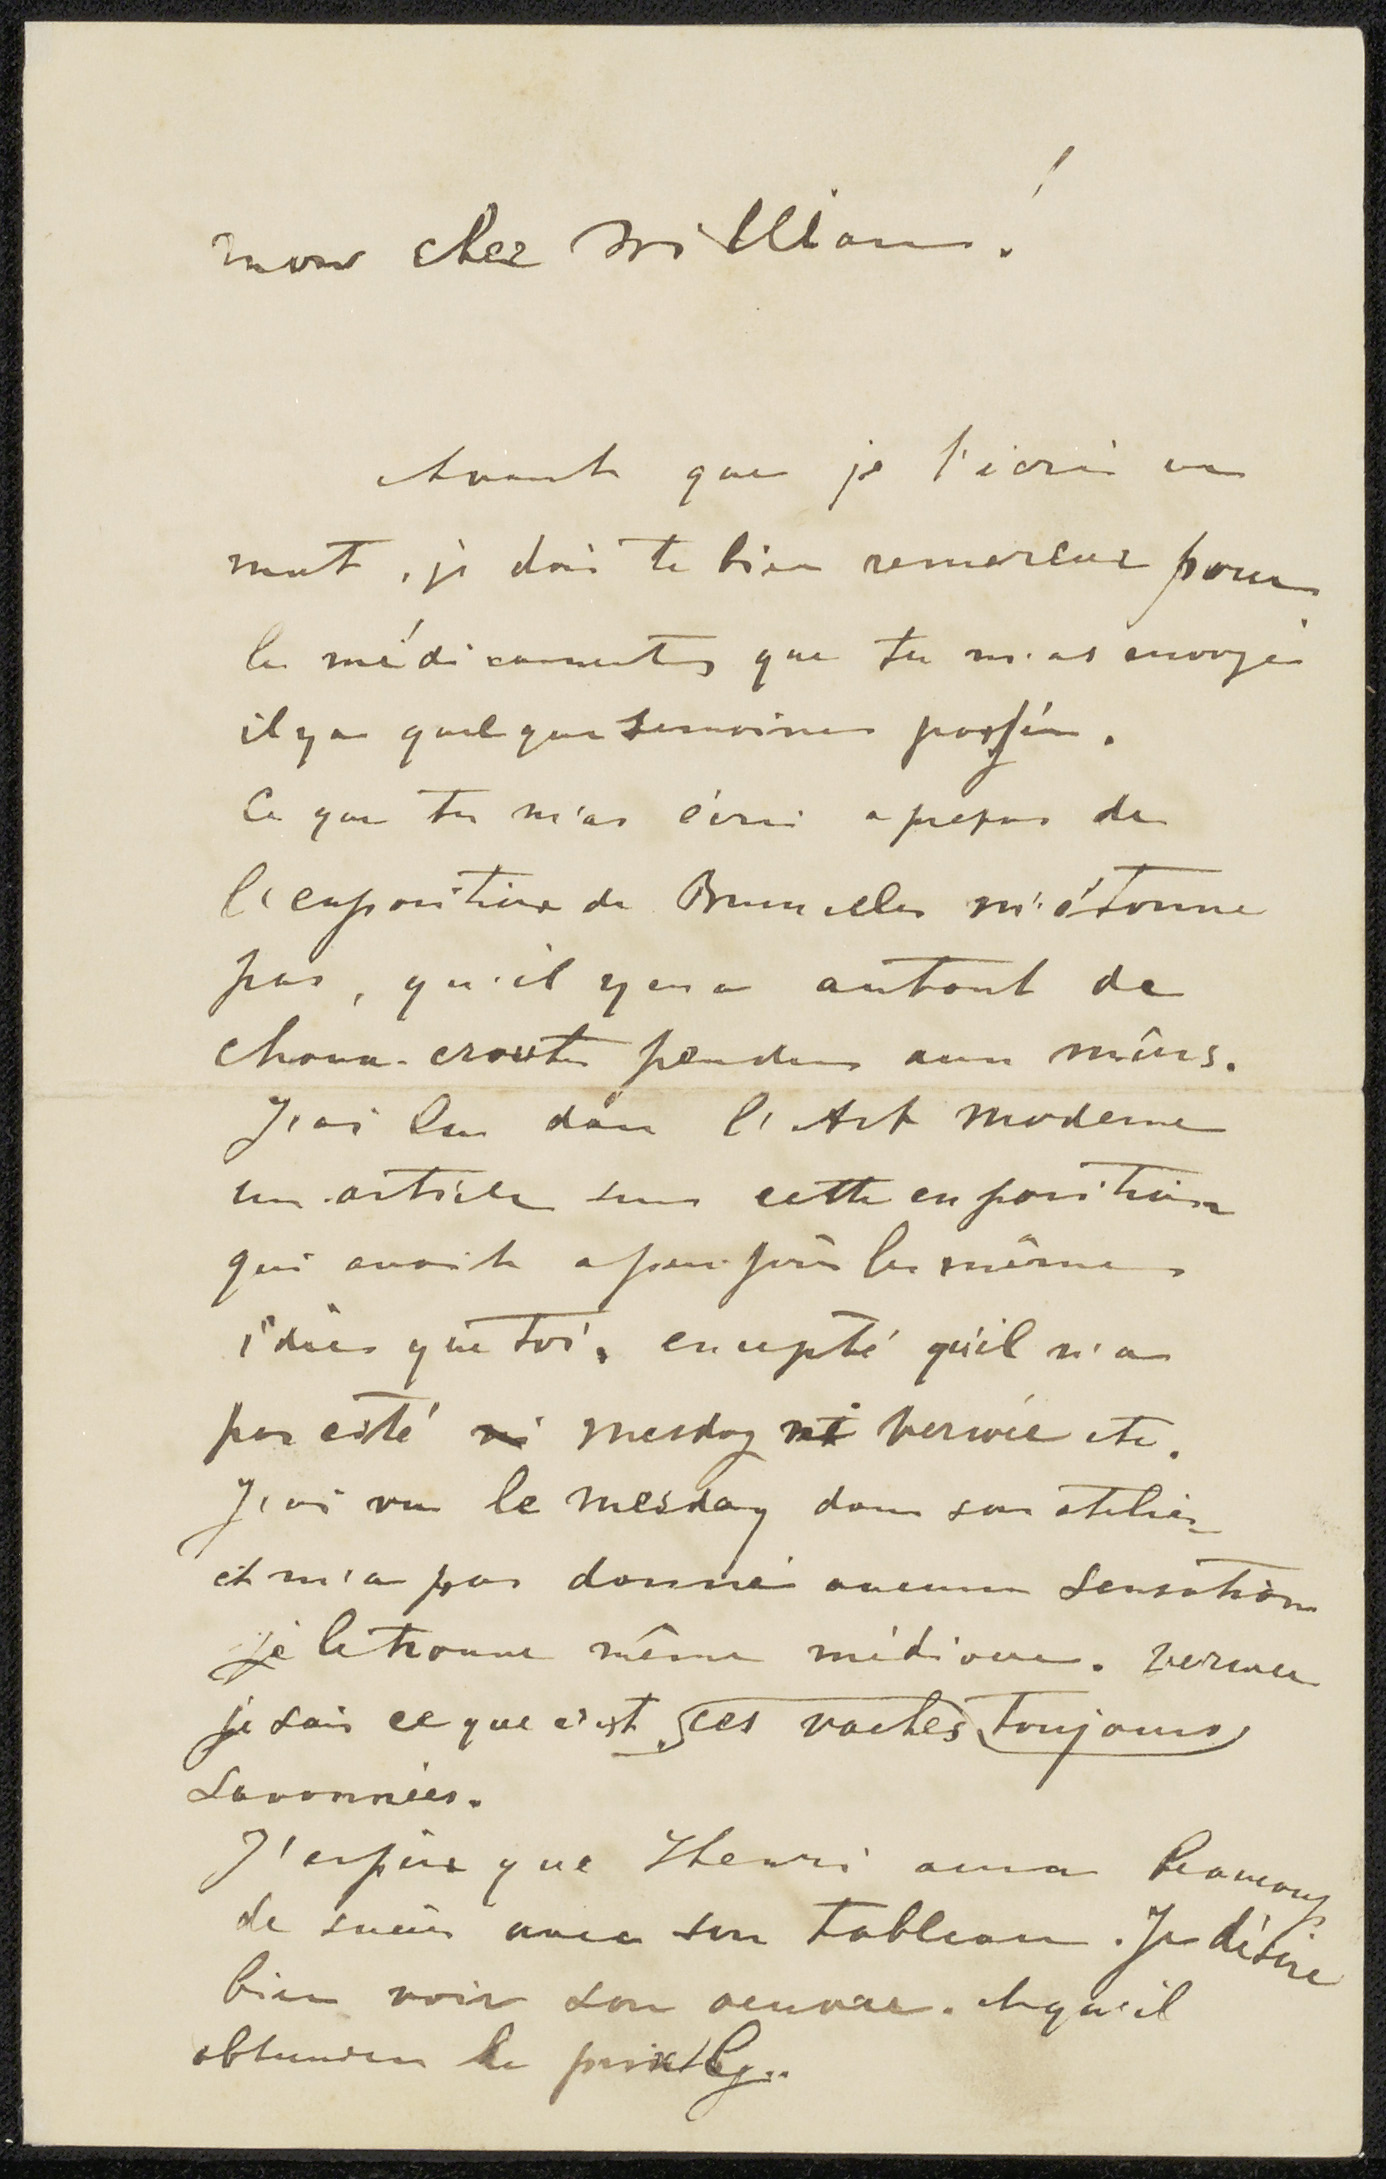 mon cher William!
Avant que je t'écris un
mot, je dois te bien remercier pour
les médicaments que tu m'as envoyé
il y a quelque semaines passées.
Ce que tu m'as écris a propos de
l'exposition de Bruxelles m'étonne
pas, qu'il y en a autant de
choux-croute pendus aux mûrs.
J'ai lu dan l'Art moderne
un article sur cette exposition
qui avait a peu près les mêmes
idées que toi, excepté qu'il n'a
pas cité ni mesdag ni Verwée etc.
J'ai vu le mesdag dans son atelier
et m'a pas donné aucune sensation
je le trouve même médiocre. Verwee
je sais ce que c'est, ces vaches toujours
savonnées.
J'espère que Henri aura beaucoup
de succès avec son tableau. Je désire
bien voir son oeuvre. et qu'il
obtiendra le prix